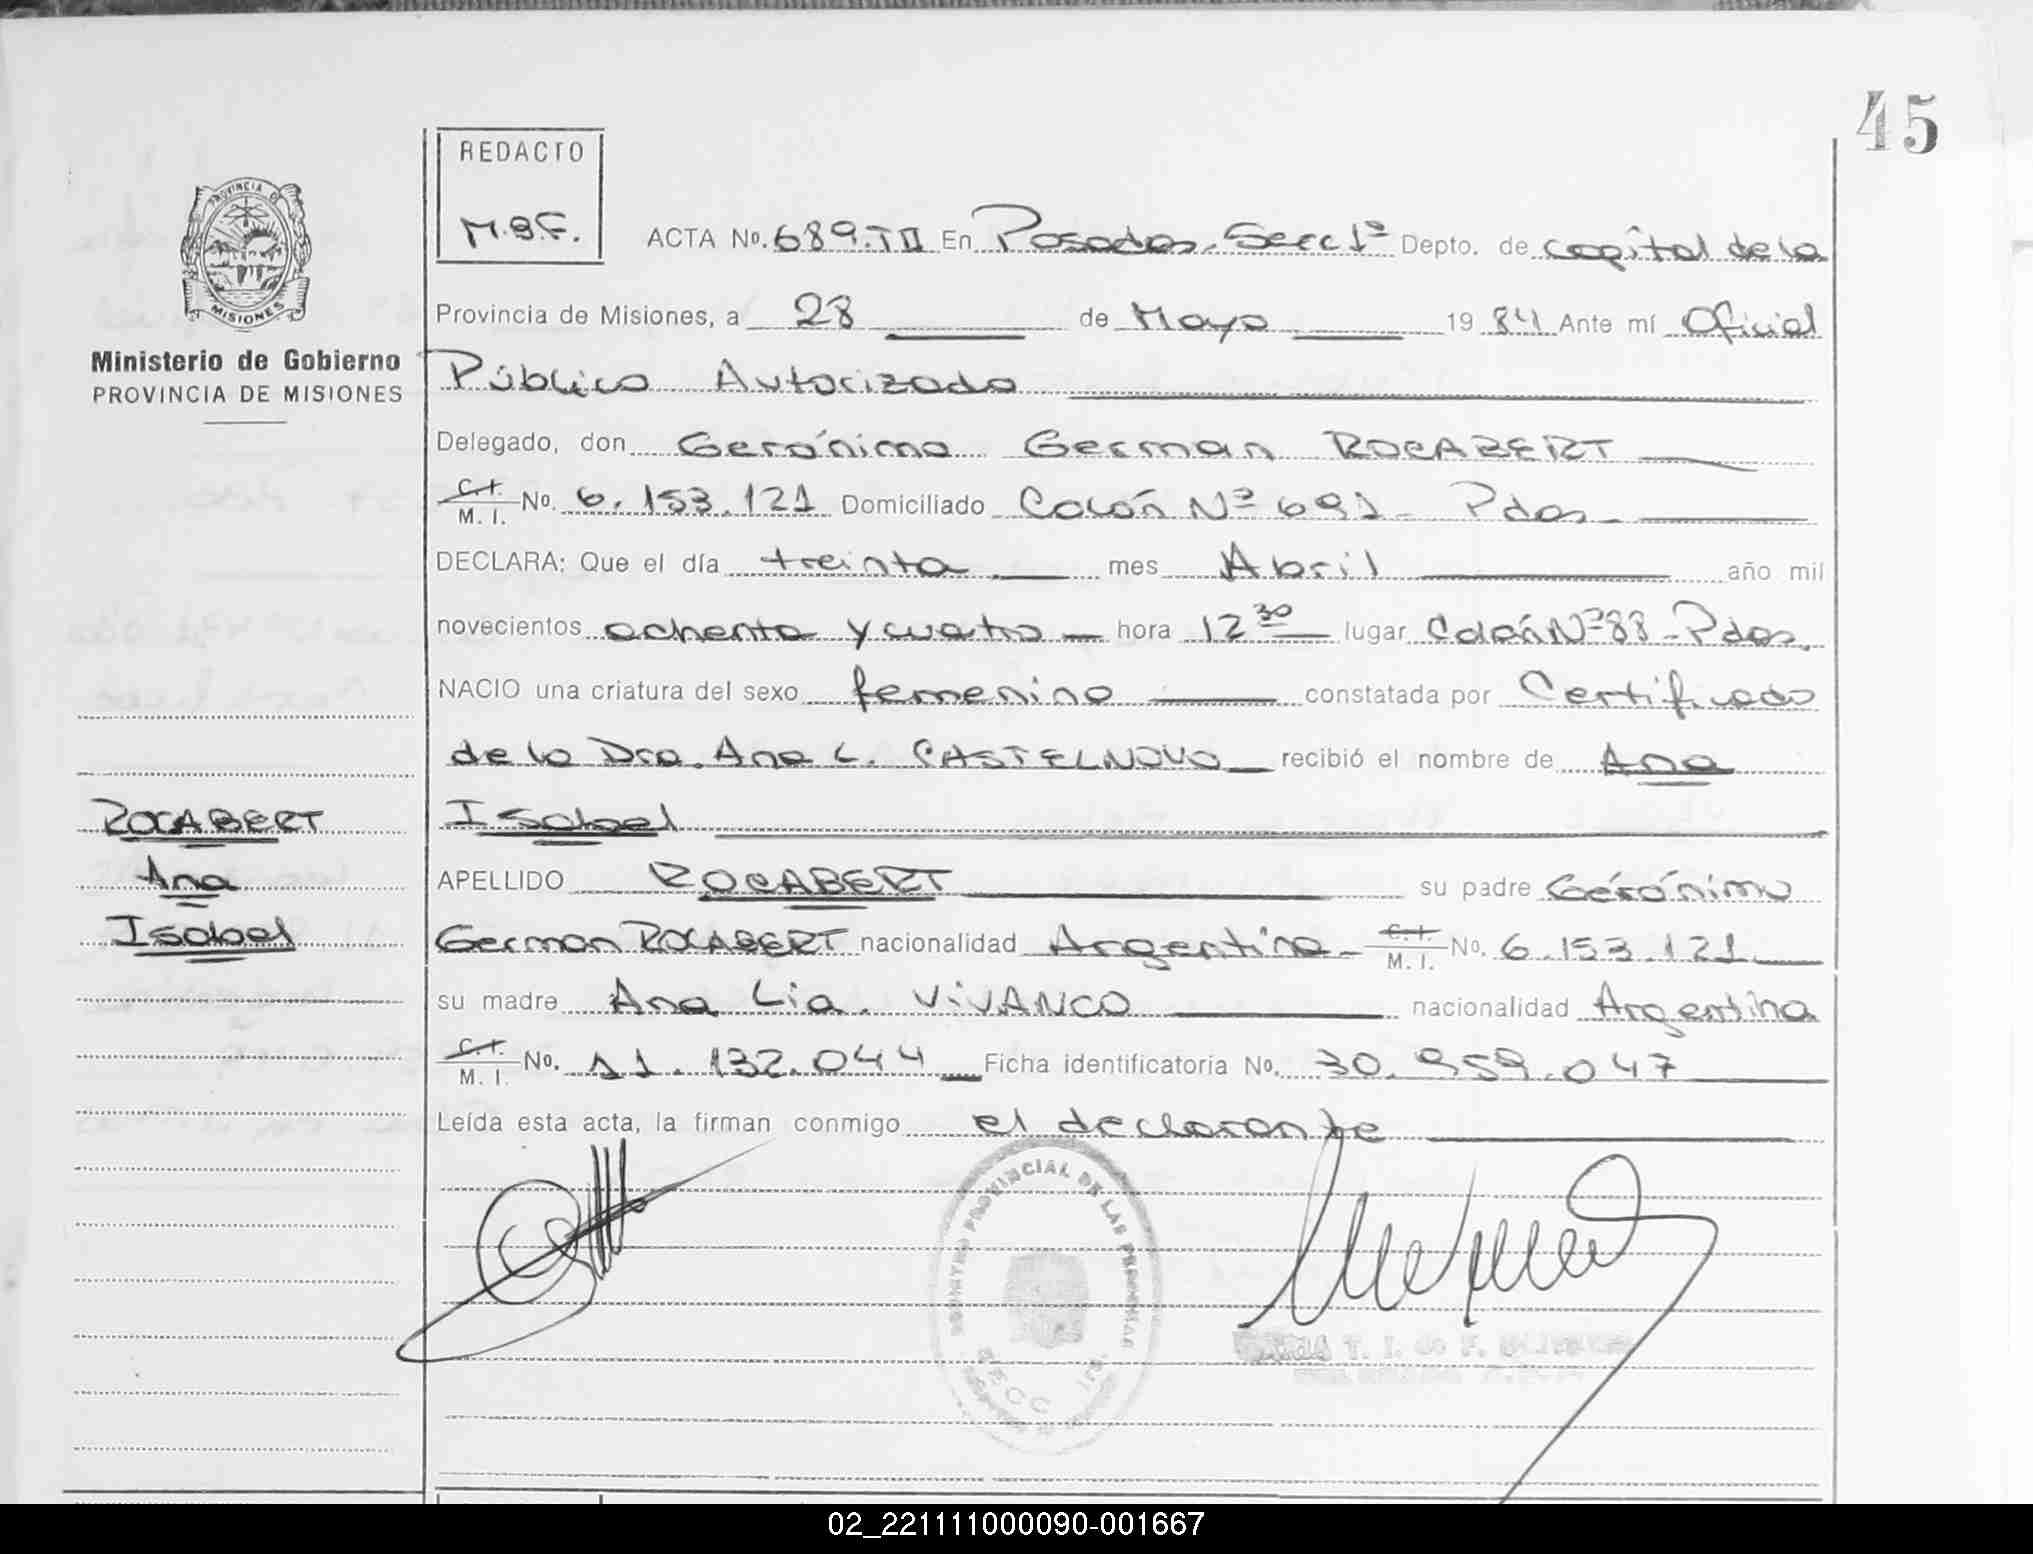 45
REDACTO
M.B.F.
PROVINCIA DE
MISIONES
Ministerio de Gobierno
PROVINCIA DE MISIONES
ACTA No. 689.TII En Posadas. Secc 1ª Depto. de capital de la
Provincia de Misiones, a 28 de Mayo 1984 Ante mí Oficial
Público Autorizado
Delegado, don Gerónimo German ROCABERT
C.I. M. I. No. 6.153.121 Domiciliado Colón Nº 691 - Pdas -
DECLARA: Que el día treinta mes Abril año mil
novecientos ochenta y cuatro hora 12 30 lugar Colón Nº 88 - Pdas.
NACIO una criatura del sexo femenino constatada por Certificado
de la Dra. Ana L. CASTELNOVO recibió el nombre de Ana
Isabel
ROCABERT
Ana
Isabel
APELLIDO ROCABERT su padre Gerónimo
German ROCABERT nacionalidad Argentina - C.I. M. I. No. 6.153.121
su madre Ana Lia VIVANCO nacionalidad Argentina
C.I. M. I. No. 11.132.044 Ficha identificatoria No. 30.959.047
Leída esta acta, la firman conmigo el declarante
REGISTRO PROVINCIAL DE LAS PERSONAS
SECC
T. I. de F.
02_221111000090-001667